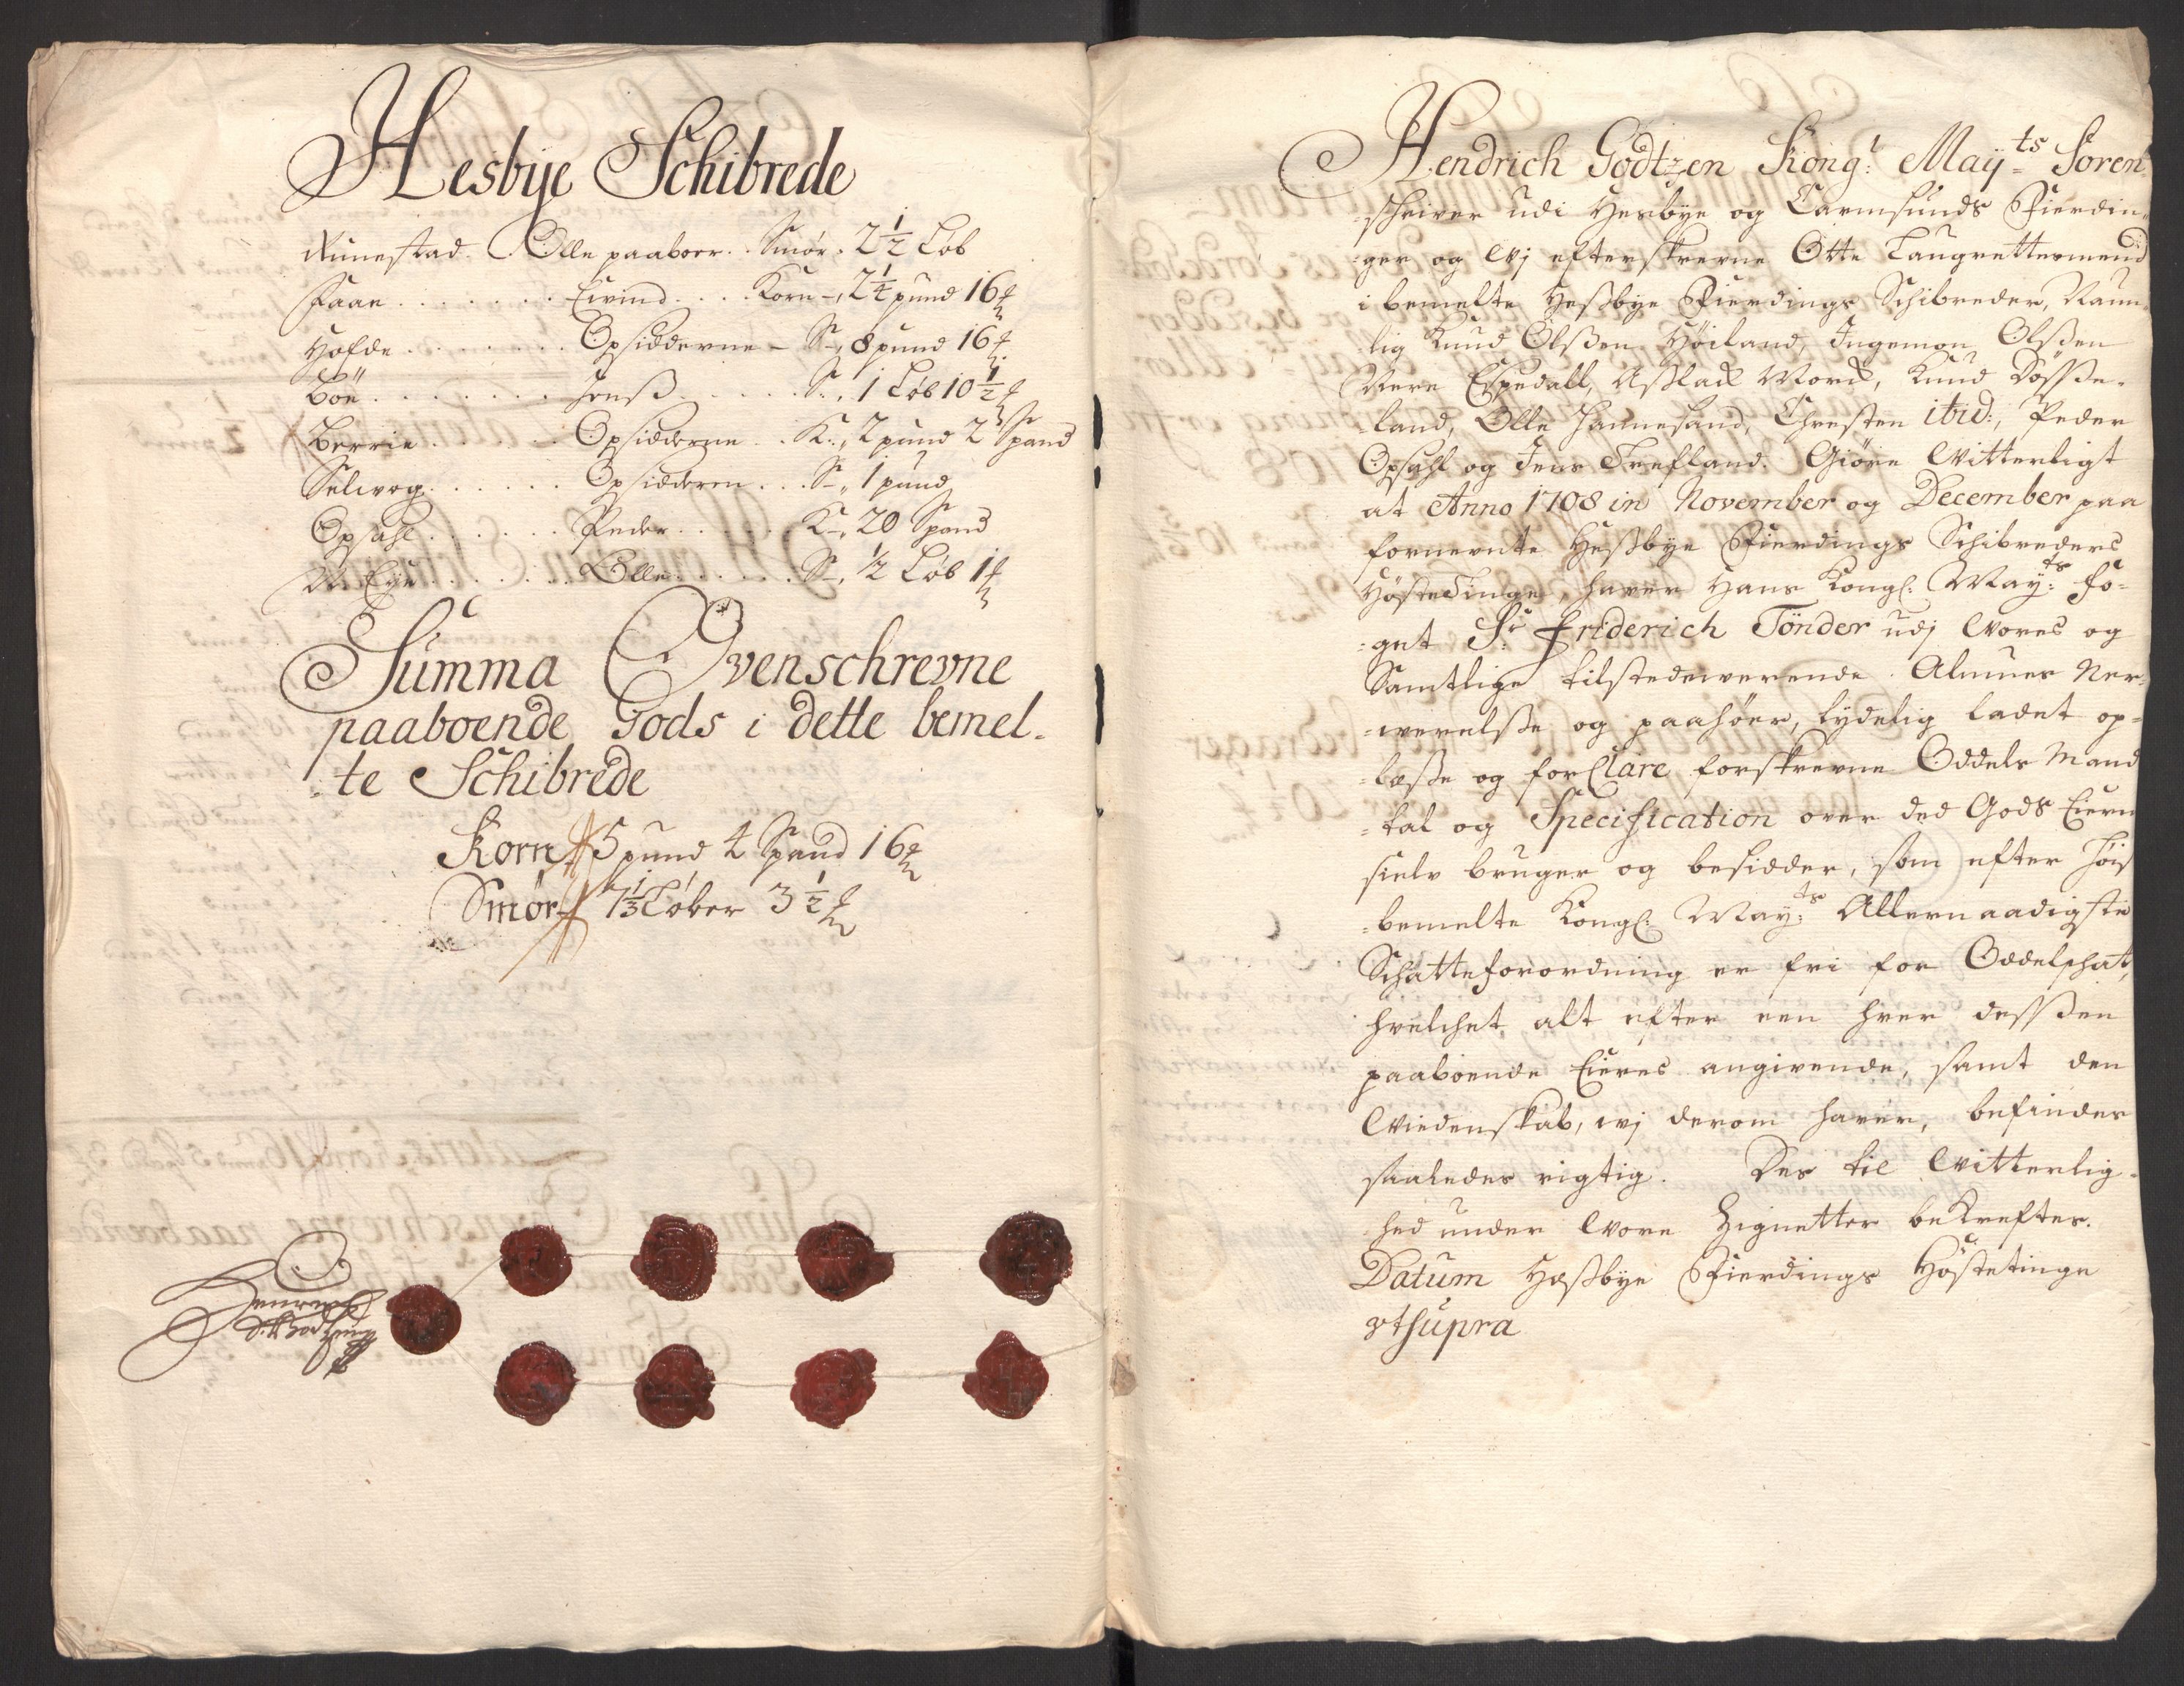 Hesbye Schibrede
Runestad . Olle paaboer . . Smør . 2 1/2 Løb
Faae . . . . . . . Eivind . . . . Korn -, 2 1/4 pund 16 ℔
Hofde . . . . . . . Opsidderne - S -, 8 pund 16 ℔
Böe . . . . . . . Jens . . . . . S -, 1 Løb 10 1/2 ℔
Berrie . . . . . Opsidderne . . K -, 2 pund 2 Spand
Selvog . . . . . . Opsidderen . . . S -, 1 pund
Opsahl . . . . . . Peder . . . . . K -, 20 Spand
N: Eye . . . . . . . Olle . . . . . S -, 1/2 Løb 1 ℔
Summa Ovenschrevne
paaboende Gods i dette bemel-
te Schibrede
Korn 5 pund 4 Spand 16 ℔
Smør 7 1/3 Løber 3 1/2 ℔
Hendrich Godtzen Kong: Mayts Soren-
schriver udi Hesbye og Carmsunds Fierdin-
ger og Wj efterskrevne Otte Laugrettesmend
i bemelte Hesbye Fierdings Schibreder, Naun-
lig Knud Olsen Høiland, Ingemon Olsen
Nere Espedall, Aslack Morck, Knud Døsse-
land, Olle Hannesand, Christen ibid:, Peder
Opsahl og Jens Trefland. Giöre Witterligt
at Anno 1708 in November og December paa
fornevnte Hesbye Fierdings Schibreders
Høstetinge, haver Hans Kongl: Mayts: Fo-
get Sr Friderich Tönder udj Wores og
Samtlige tilstedeverende Almues Ner-
werelse og paahøer, lydelig ladet op-
læse og forClare forskrevne Oddels Mand
tal og Specification over ded Gods Eierne
sielv bruger og besidder, som efter høist
bemelte Kongl: Mayts: Allernaadigste
Schatteforordning er fri for Oddelschat,
hvelchet alt efter een hver dessen
paaboende Eieres angivende, samt den
Widenskab, wj derom haver, befindes
saaledes rigtig. Des til Witterlig-
hed under Wore Zignetter bekreftes.
Datum Hesbye Fierdings Høstetinge
ut supra